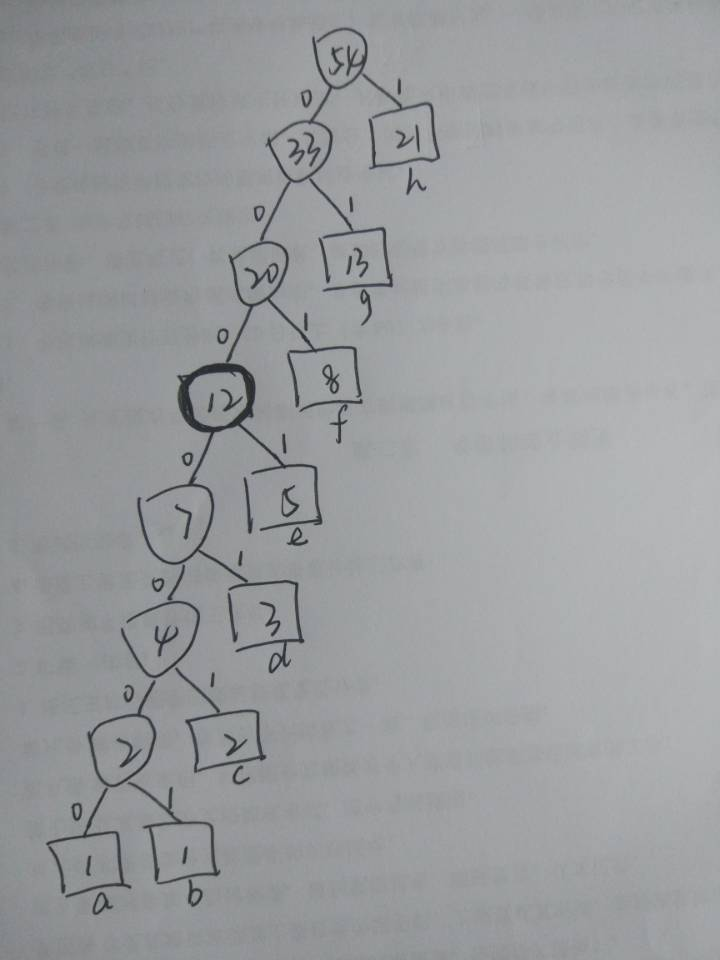 54
0 1
33 21
h
0 1
20 13
g
0 1
12 8
f
0 1
7 5
e
0 1
4 3
d
0 1
2 2
c
0 1
1 1
a b